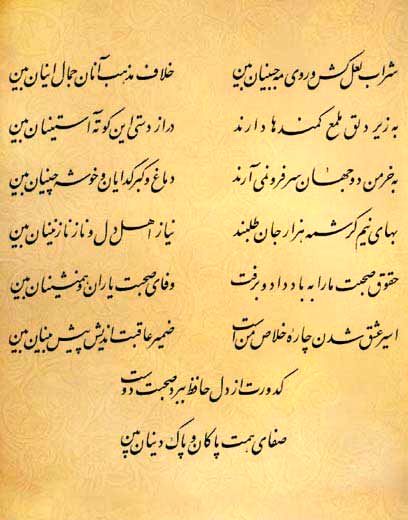 شراب لعل کش و روی مه جبینان بین خلاف مذهب آنان جمال اینان بین
به زیر دلق ملمع کمندها دارند دراز دستی این کوته آستینان بین
به خرمن دو جهان سر فرو نمی آرند دماغ و کبر گدایان و خوشه چینان بین
بهای نیم کرشمه هزار جان طلبند نیاز اهل دل و ناز نازنینان بین
حقوق صحبت ما را به باد داد و برفت وفای صحبت یاران و همنشینان بین
اسیر عشق شدن چارهٔ خلاص من است ضمیر عاقبت اندیش پیش بینان بین
کدورت از دل حافظ ببرد صحبت دوست
صفای همت پاکان و پاک دینان بین